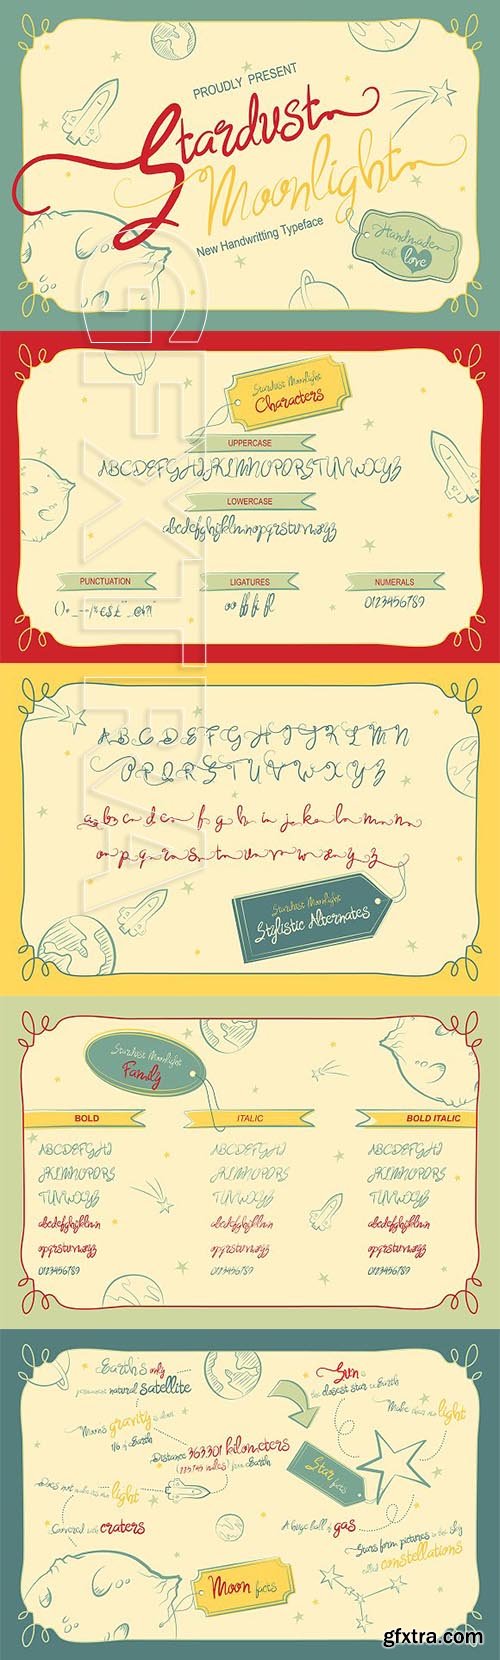 PROUDLY PRESENT
Stardust
Moonlight
New Handwritting Typeface
Handmade
with love
GFXTRA
Stardust Moonlight
Characters
UPPERCASE
ABCDEFGHIJKLMNOPQRSTUVWXYZ
LOWERCASE
abcdefghijklmnopqrstuvwxyz
PUNCTUATION
LIGATURES
NUMERALS
oo ff fi fl
0123456789
A B C D E F G H I J K L M N
O P Q R S T U V W X Y Z
a b c d e f g h i j k l m n
o p q r s t u v w x y z
Stardust Moonlight
Stylistic Alternates
Stardust Moonlight
Family
BOLD
ITALIC
BOLD ITALIC
ABCDEFGHI
ABCDEFGHI
ABCDEFGHI
JKLMNOPQRS
JKLMNOPQRS
JKLMNOPQRS
TUVWXYZ
TUVWXYZ
TUVWXYZ
abcdefghijklmn
abcdefghijklmn
abcdefghijklmn
opqrstuvwxyz
opqrstuvwxyz
opqrstuvwxyz
0123456789
0123456789
0123456789
Earth's only
permanent natural satellite
Moon's gravity is about
1/6 of Earth
Distance 363301 kilometers
miles) from Earth
Does not make its own light
Covered with craters
Moon facts
Sun is
the closest star to Earth
Make their own light
Star facts
A huge ball of gas
Stars form pictures in the sky
called constellations
gfxtra.com